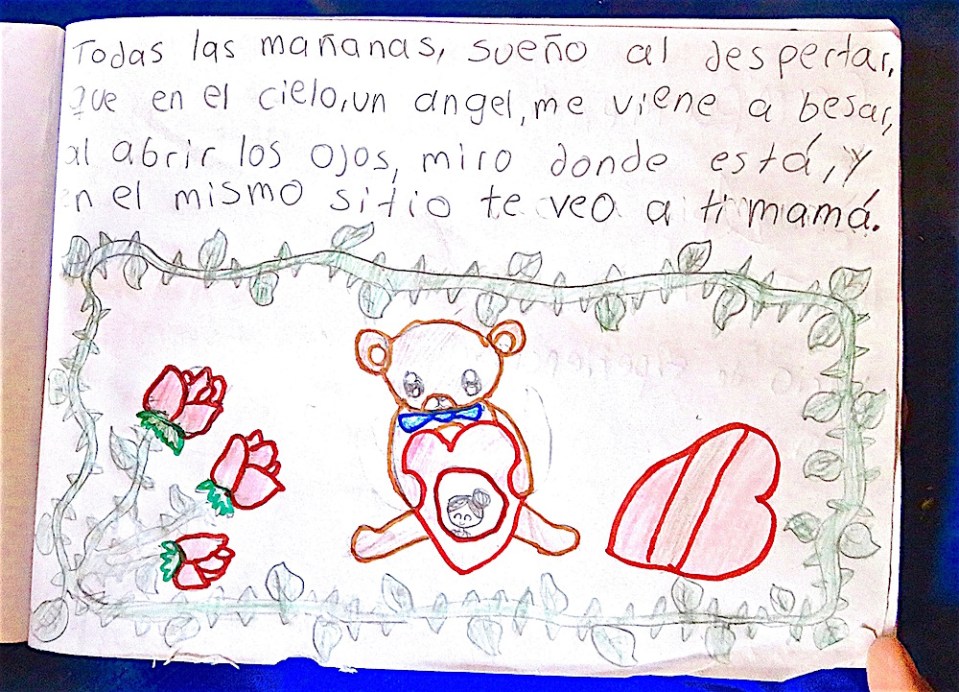 Todas las mañanas, sueño al despertar,
que en el cielo, un angel, me viene a besar,
al abrir los ojos, miro donde está, y
en el mismo sitio te veo a ti mamá.